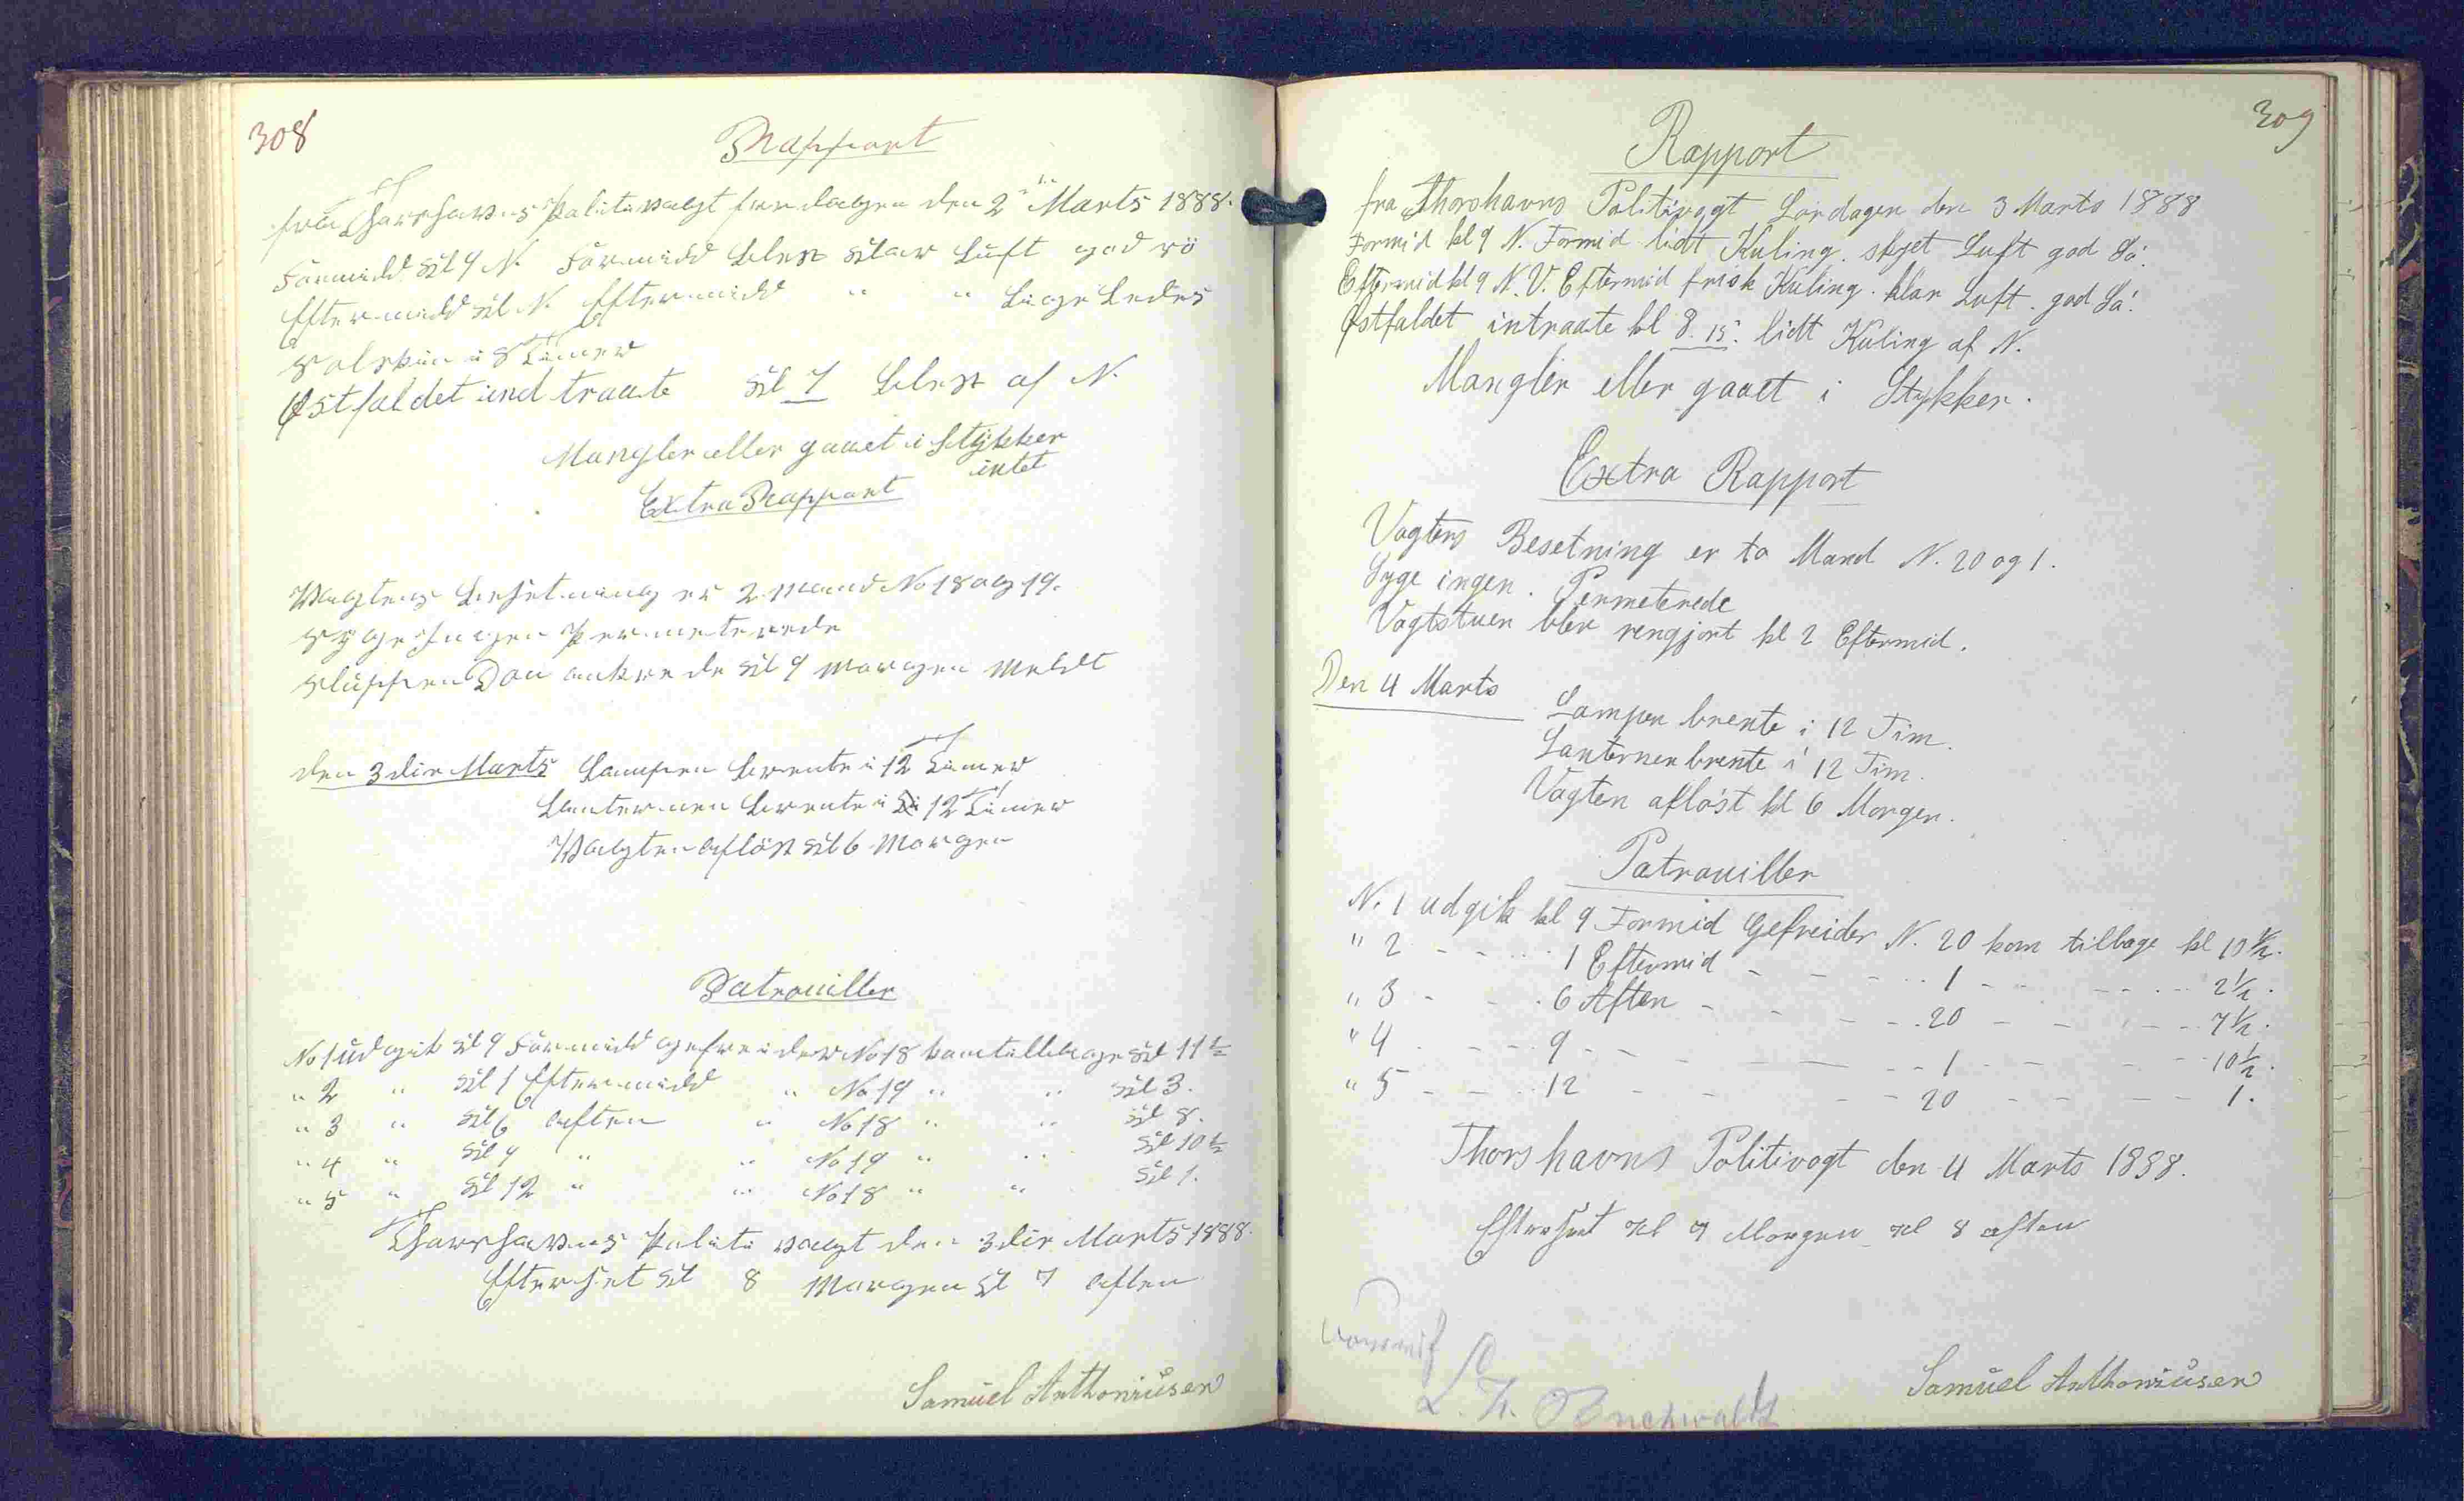 308
Rapport
fra Thorshavns Politivagt fredagen den 2den Marts 1888.
Formidd kl 9 N. Formidd blest klar Luft god sö
Eftermidd kl N. Eftermidd " " Lige Ledes
Solskin i 8 Timer
Østfaldet indtraate kl 7 blest af N.
Mangler eller gaaet i Stykker
intet
Extra Rapport
Wagtens besetning er 2 Mand No 18 og 19.
Syge Ingen Permeterede
Sluppen Dou ankrede kl 9 morgen Meldt
den 3die Marts Lampen brente i 12 Timer
Lanternen brente i 12 Timer
Wagten aflöst kl 6 Morgen
Patrouiller
No 1 udgik kl 9 Formidd gefreider No 18 kom tilbage kl 11½
" 2 " kl 1 Eftermidd " No 19 " " kl 3.
" 3 " kl 6 aften " No 18 " " kl 8.
" 4 " kl 9 " " No 19 " " kl 10½
" 5 " kl 12 " " No 18 " " kl 1.
Thorshavns Politivagt den 3die Marts 1888.
Efterset kl 8 Morgen kl 7 aften
Samuel Anthoniusen
309
Rapport
fra Thorshavns Politivagt Lördagen den 3 Marts 1888
Formid kl 9 N. Formid lidt Kuling. skyet Luft god Sö.
Eftermid kl 9 N.V. Eftermid frisk Kuling. klar Luft. god Sö.
Østfaldet intraate kl 8.15. lidt Kuling af N.
Mangler eller gaaet i Stykker.
Extra Rapport
Vagtens Besetning er to Mand N. 20 og 1.
Syge ingen. Permeterede
Vagtstuen blev rengjort kl 2 Eftermid.
Den 4 Marts
Lampen brente i 12 Tim.
Lanternen brente i 12 Tim.
Vagten aflöst kl 6 Morgen.
Patrouiller
N. 1 udgik kl 9 Formid Gefreider N. 20 kom tilbage kl 10½.
" 2 - - - 1 Eftermid - - - 1 - - - 2½.
" 3 - - 6 Aften - - - 20 - - - 7½.
" 4 - - - 9 - - - - 1 - - - 10½.
" 5 - - - 12 - - - - 20 - - - 1.
Thorshavns Politivagt den 4 Marts 1888.
Efterset kl 7 Morgen kl 8 aften
Samuel Anthoniusen